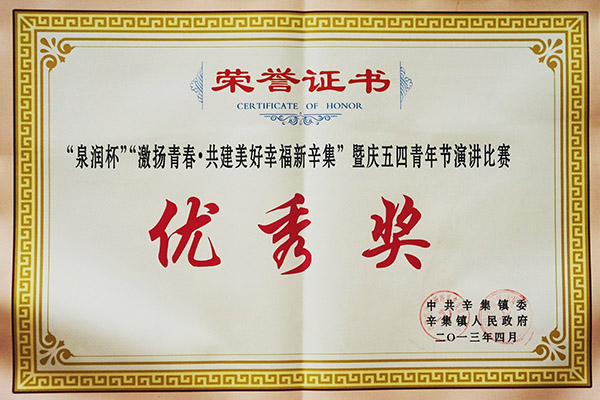 荣誉证书
CERTIFICATE OF HONOR
“泉润杯”“激扬青春·共建美好幸福新辛集”暨庆五四青年节演讲比赛
优秀奖
中共辛集镇委
辛集镇人民政府
二〇一三年四月